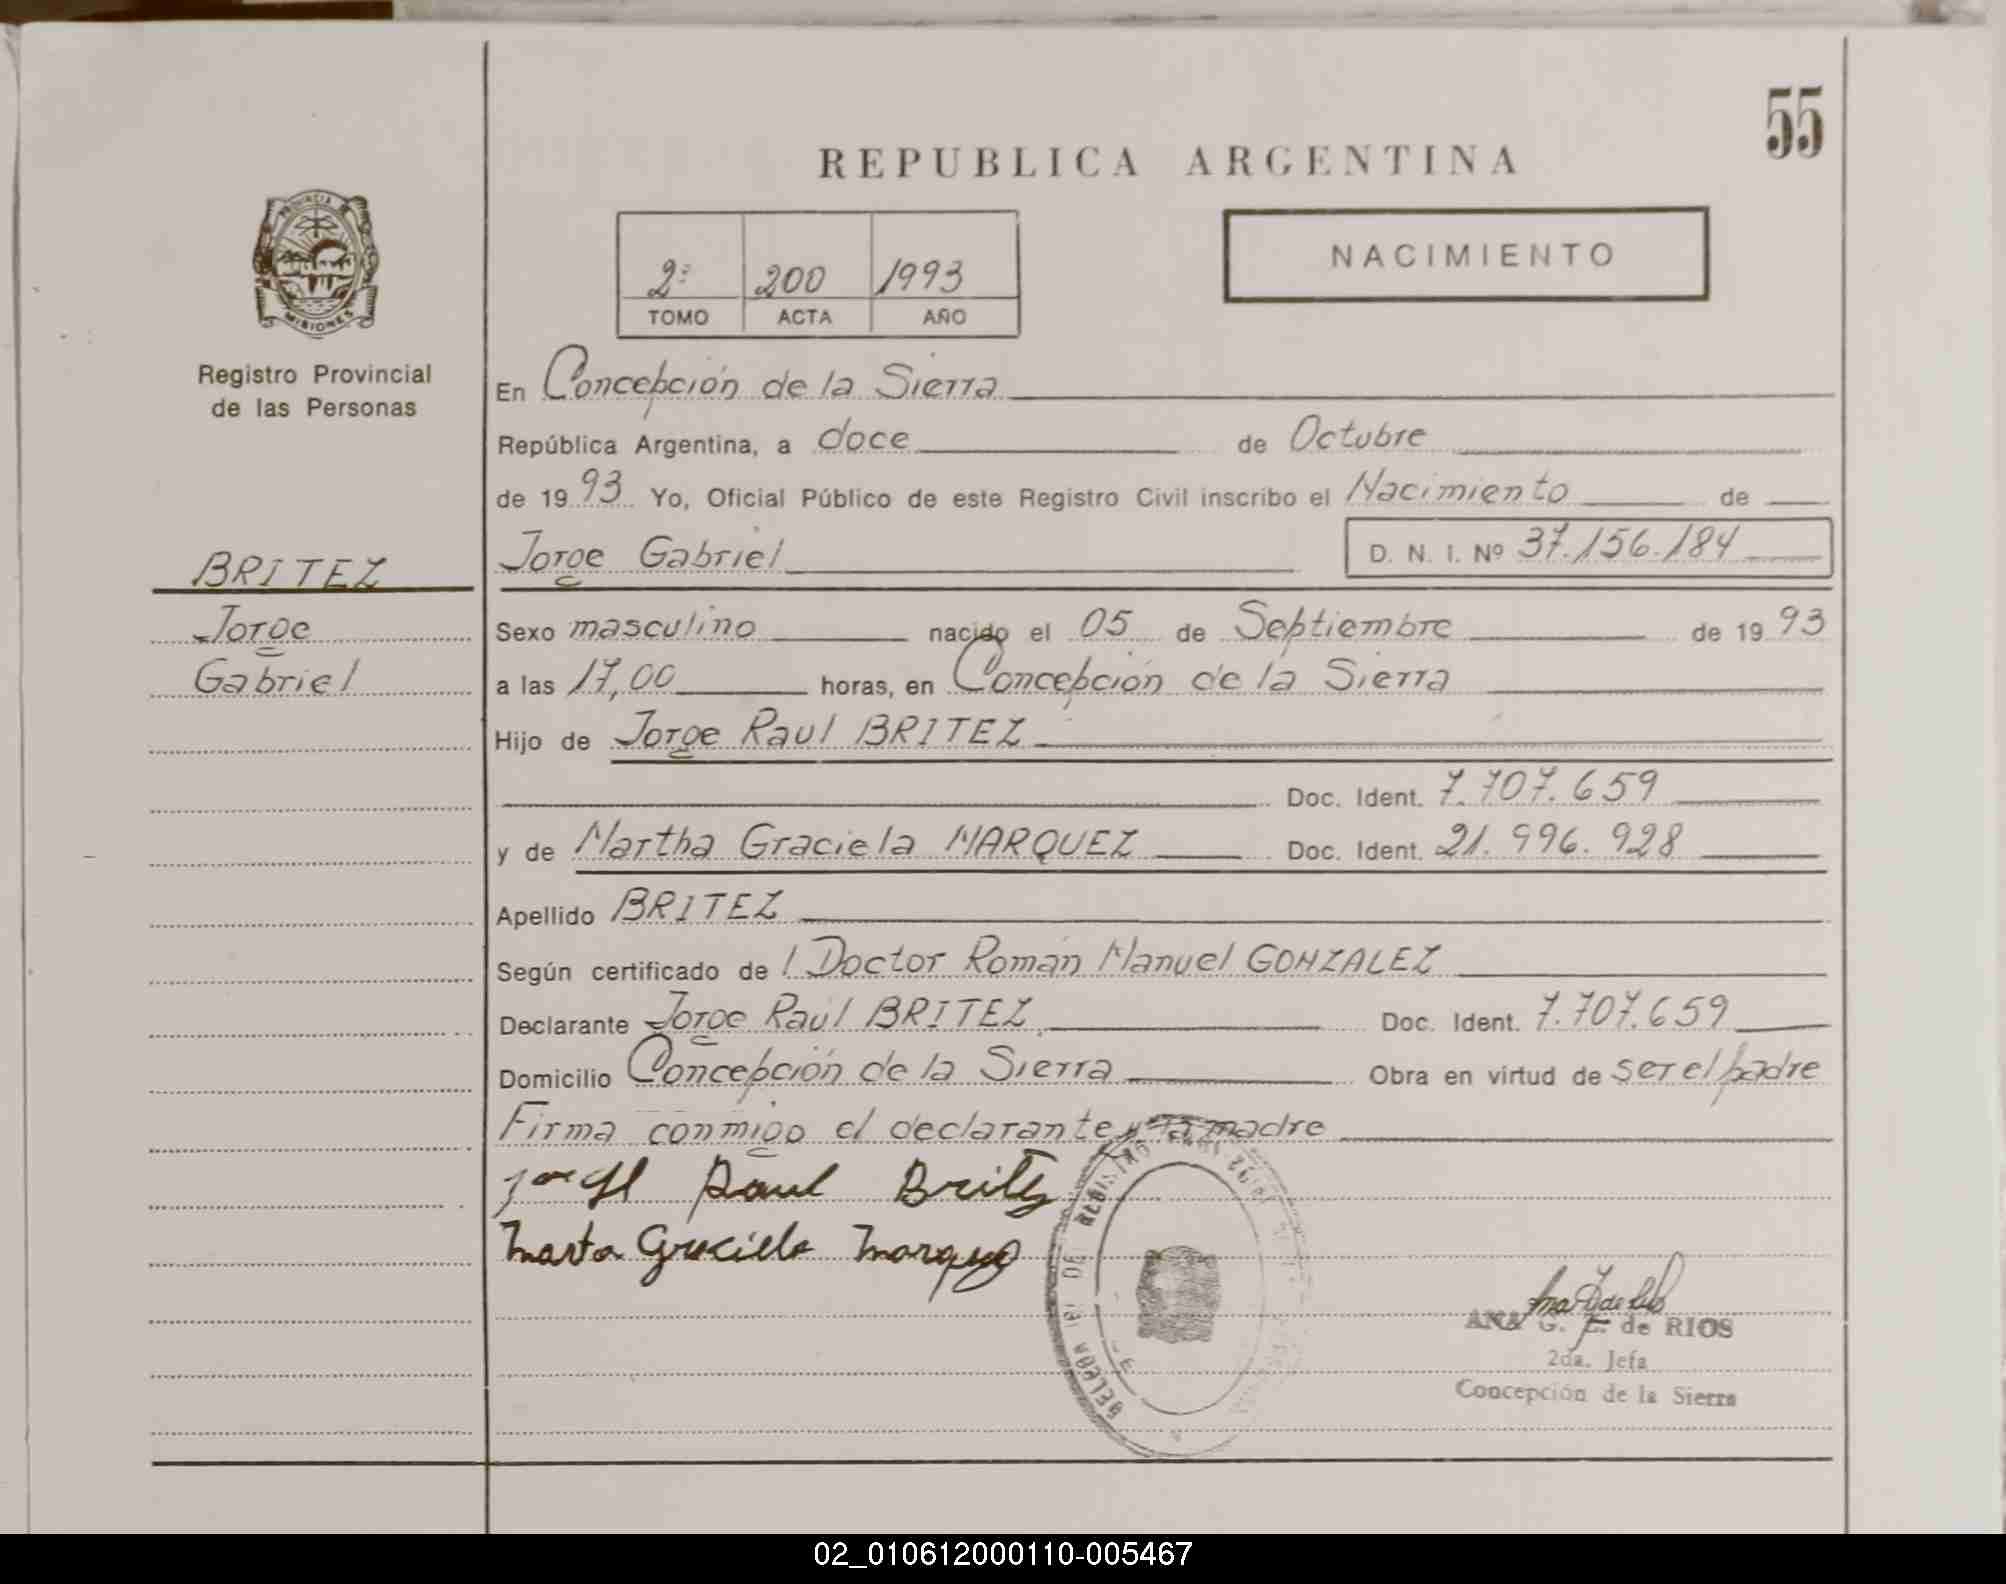 55
REPUBLICA ARGENTINA
PROVINCIA DE
MISIONES
Registro Provincial
de las Personas
2º 200 1993
TOMO ACTA AÑO
NACIMIENTO
En Concepción de la Sierra
República Argentina, a doce de Octubre
de 1993 Yo, Oficial Público de este Registro Civil inscribo el Nacimiento de
BRITEZ
Jorge
Gabriel
Jorge Gabriel D. N. I. Nº 37.156.184
Sexo masculino nacido el 05 de Septiembre de 1993
a las 17,00 horas, en Concepción de la Sierra
Hijo de Jorge Raul BRITEZ
Doc. Ident. 7.707.659
y de Martha Graciela MARQUEZ Doc. Ident. 21.996.928
Apellido BRITEZ
Según certificado de l Doctor Román Manuel GONZALEZ
Declarante Jorge Raúl BRITEZ Doc. Ident. 7.707.659
Domicilio Concepción de la Sierra Obra en virtud de ser el padre
Firma conmigo el declarante y la madre
Raul Britez
Marta Graciela Marquez
ANA G. E. de RIOS
2da. Jefa
Concepción de la Sierra
02_010612000110-005467